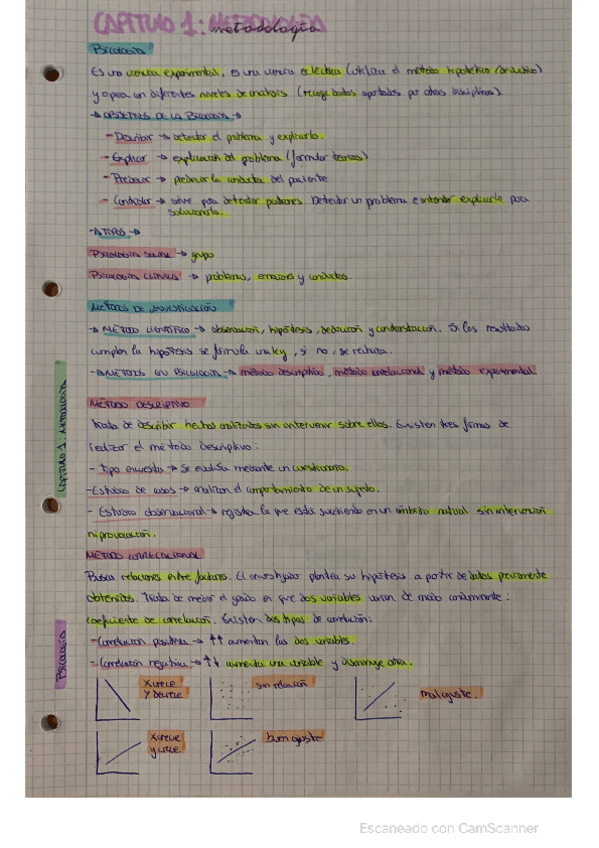 CAPITULO 1: METODOLOGÍA
metodología
PSICOLOGÍA
Es una ciencia experimental, es una ciencia ecléctica (utiliza el método hipotético deductivo)
y opera en diferentes niveles de análisis (recoge datos aportados por otras disciplinas).
→ OBJETIVOS DE LA PSICOLOGÍA →
- Describir → detectar el problema y explicarlo.
- Explicar → explicación del problema (formular teorías)
- Predecir → predecir la conducta del paciente
- Controlar → sirve para detectar patrones. Detectar un problema e intentar explicarlo para
solucionarlo.
→ TIPOS →
PSICOLOGÍA SOCIAL → grupo
PSICOLOGÍA CLÍNICA → problemas, emociones y conductas.
MÉTODOS DE INVESTIGACIÓN
→ MÉTODO CIENTÍFICO → observación, hipótesis, deducción y contrastación. Si los resultados
cumplen la hipótesis se formula una ley, si no, se rechaza.
→ MÉTODOS EN PSICOLOGÍA → método descriptivo, método correlacional y método experimental
MÉTODO DESCRIPTIVO
Trata de describir hechos analizados sin intervenir sobre ellos. Existen tres formas de
realizar el método descriptivo:
- Tipo encuesta → Se evalúa mediante un cuestionario.
- Estudio de casos → analizan el comportamiento de un sujeto.
- Estudio observacional → registra lo que está sucediendo en un ámbito natural sin intervención
ni provocación.
MÉTODO CORRELACIONAL
Busca relaciones entre factores. El investigador plantea su hipótesis a partir de datos previamente
obtenidos. Trata de medir el grado en que dos variables varían de modo concomitante:
coeficiente de correlación. Existen dos tipos de correlación:
- Correlación positiva → ↑↑ aumentan las dos variables.
- Correlación negativa → ↑↓ aumenta una variable y disminuye otra.
X crece
Y decrece
sin relación
mal ajuste.
X crece
y crece
buen ajuste
CAPITULO 1: METODOLOGÍA
PSICOLOGÍA
Escaneado con CamScanner